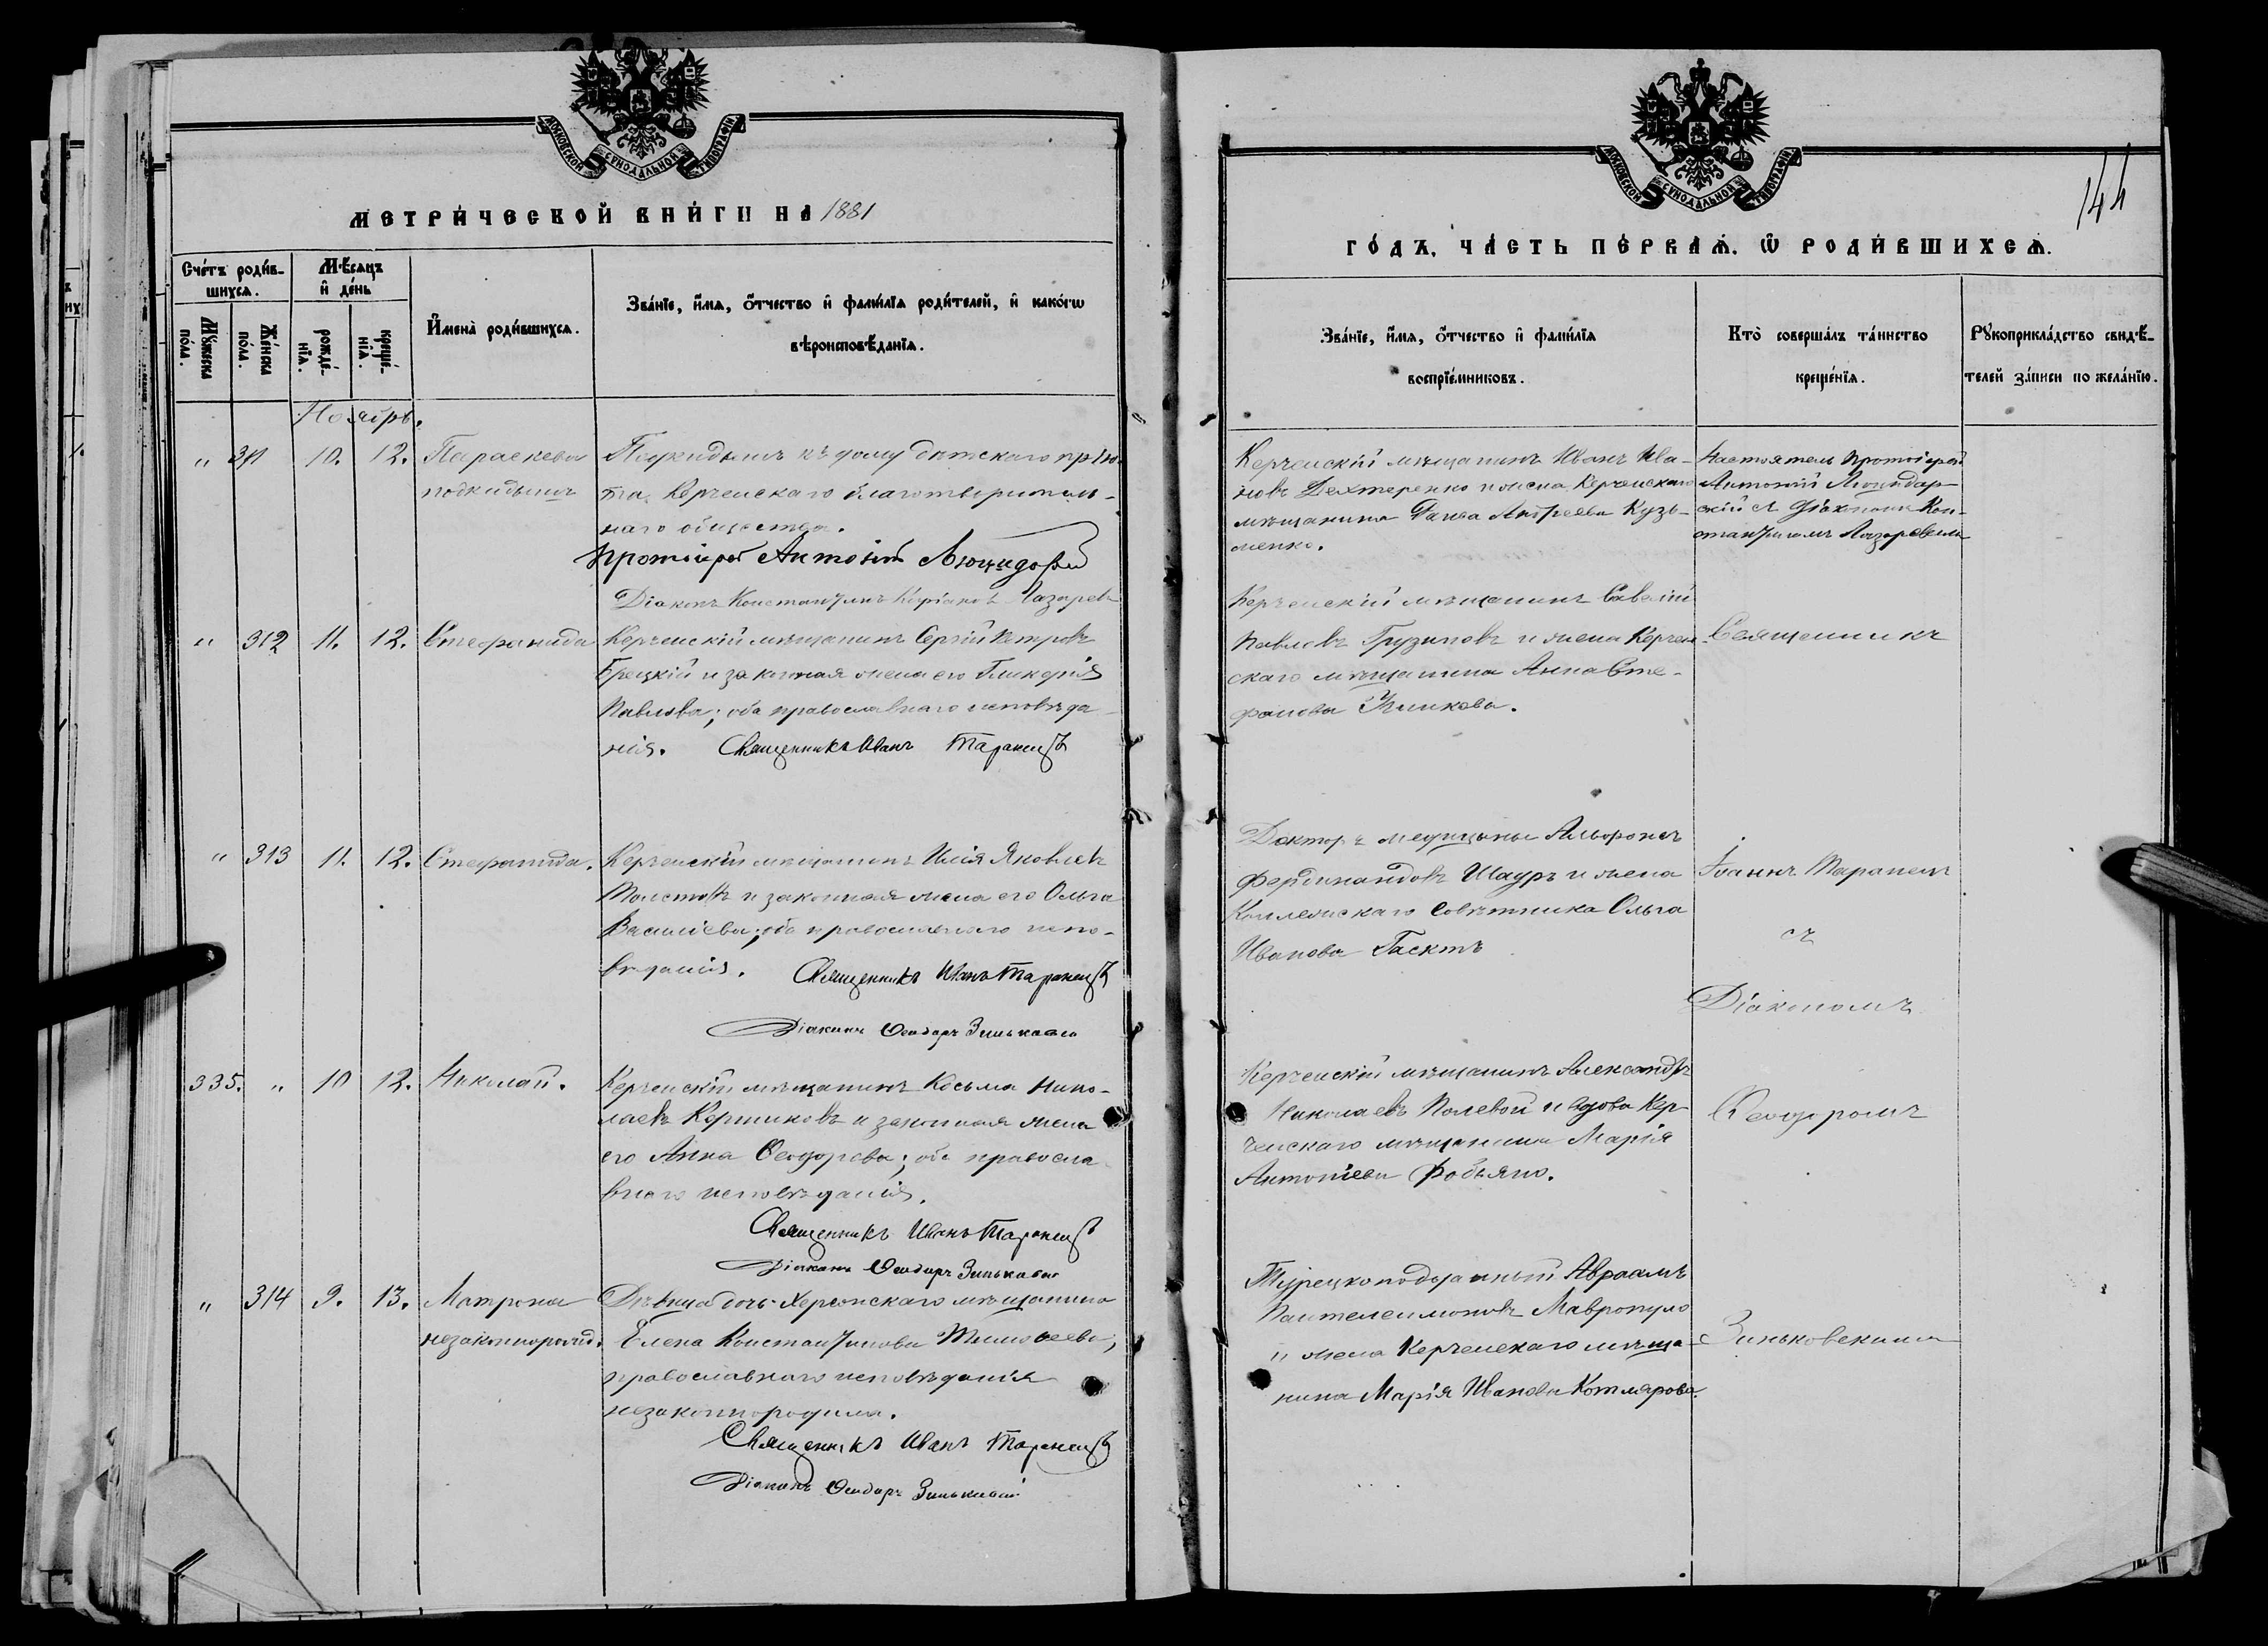 МОСКОВСКОЙ СѴНОДАЛЬНОЙ ТИПОГРАФІИ
МЕТРИ́ЧЕСКОЙ КНИ́ГИ НА 1881
Сче́тъ роди́в-
шихся.
Мѣсяцъ
и҆ де́нь
Мꙋ́жеска
по́ла.
Же́нска
по́ла.
рожде́-
нїѧ.
креще́-
нїѧ.
И҆мена̀ роди́вшихсѧ.
Зва́нїе, и҆́мѧ, ѻ҆́тчество и҆ фами́лїѧ роди́телей, и҆ како́гѡ
вѣроисповѣ́данїѧ.
Ноябрь.
„ 311 10. 12. Параскева
подкидышъ
Подкидышъ къ дому дѣтскаго прію-
та Керченскаго благотворитель-
наго общества.
Протоіерей Антоній
Діаконъ Константинъ Лазаревъ
„ 312 11. 12. Стефанида
Керченскій мѣщанинъ Сергій Петровъ
Грецкій и законная жена его Гликерія
Павлова; оба православнаго исповѣда-
нія. Священникъ Иванъ Таранецъ
„ 313 11. 12. Стефанида.
Керченскій мѣщанинъ Илія Яковлевъ
Толстовъ и законная жена его Ольга
Василіева; оба православнаго испо-
вѣданія. Священникъ Иванъ Таранецъ
Діаконъ Ѳеодоръ Зиньковскій
335. „ 10 12. Николай.
Керченскій мѣщанинъ Косьма Нико-
лаевъ и законная жена
его Анна Ѳеодорова; оба правосла-
внаго исповѣданія.
Священникъ Иванъ Таранецъ
Діаконъ Ѳеодоръ Зиньковскій
„ 314 9. 13. Матрона
незаконнорожд.
Дѣвица дочь Херсонскаго мѣщанина
Елена Константинова Тимоѳеева;
православнаго исповѣданія
незаконнородила.
Священникъ Иванъ Таранецъ
Діаконъ Ѳеодоръ Зиньковскій
МОСКОВСКОЙ СѴНОДАЛЬНОЙ ТИПОГРАФІИ
144
ГО́ДЪ, ЧА́СТЬ ПЕ́РВАѦ, Ѡ҆ РОДИ́ВШИХСѦ.
Зва́нїе, и҆́мѧ, ѻ҆́тчество и҆ фами́лїѧ
воспрїе́мниковъ.
Кто̀ соверша́лъ та́инство
креще́нїѧ.
Рꙋкоприкла́дство свидѣ́-
телей за́писи по жела́нїю.
Керченскій мѣщанинъ Иванъ Ива-
новъ Дехтеренко и жена Керченскаго
мѣщанина Андреева Кузь-
менко.
Настоятель Протоіерей
Антоній
съ Діакономъ Кон-
стантиномъ Лазаревымъ
Керченскій мѣщанинъ Савелій
Павловъ Грузиновъ и жена Керчен-
скаго мѣщанина Анна Сте-
фанова
Священникъ
Докторъ медицины Альфонсъ
Фердинандовъ Шауръ и жена
Коллежскаго Совѣтника Ольга
Иванова
Іоаннъ Таранецъ
съ
Діакономъ
Керченскій мѣщанинъ Александръ
Николаевъ Полевой и вдова Кер-
ченскаго мѣщанина Марія
Антоніева
Ѳеодоромъ
Турецкоподданный Авраамъ
Пантелеимоновъ Мавропуло
и жена Керченскаго мѣща-
нина Марія Иванова Котлярова.
Зиньковскимъ